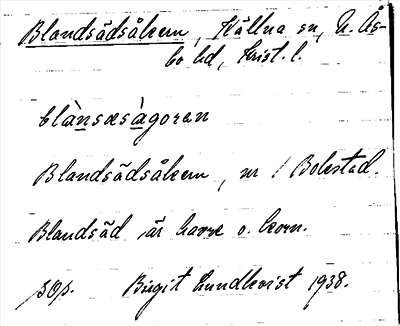 Blandsädsåkern, Källna sn, N. Ås-
bo hd, Krist. l.
blànsæsàgoran
Blandsädsåkern, nr 1 Bolestad.
Blandsäd är havre o. korn.
Birgit Lundkvist 1938.